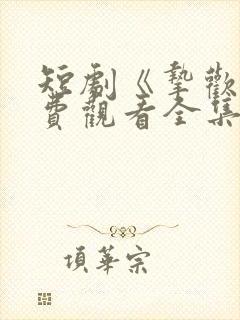 短劇《摯歡
費觀看全集
項華宗